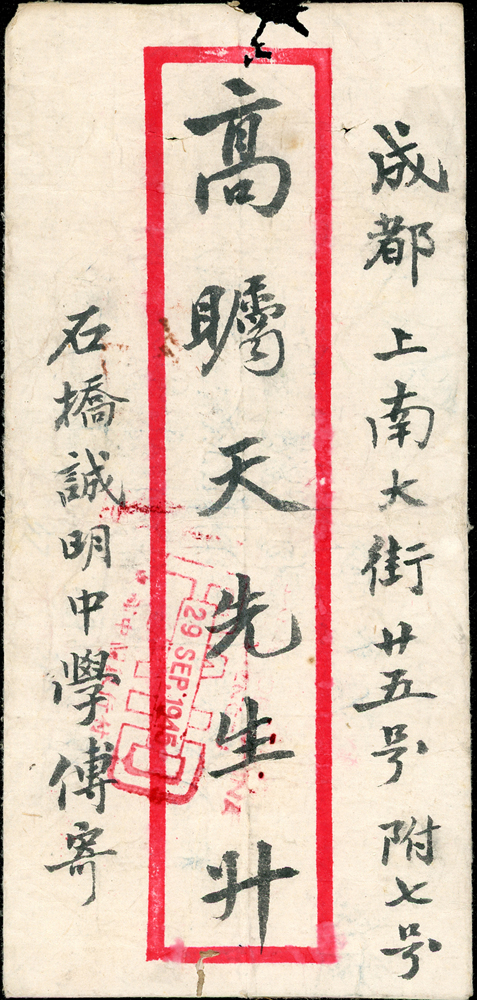 成都 上南大街廿五号 附七号
高矚天先生升
石橋誠明中學傅寄
29 SEP. 1945